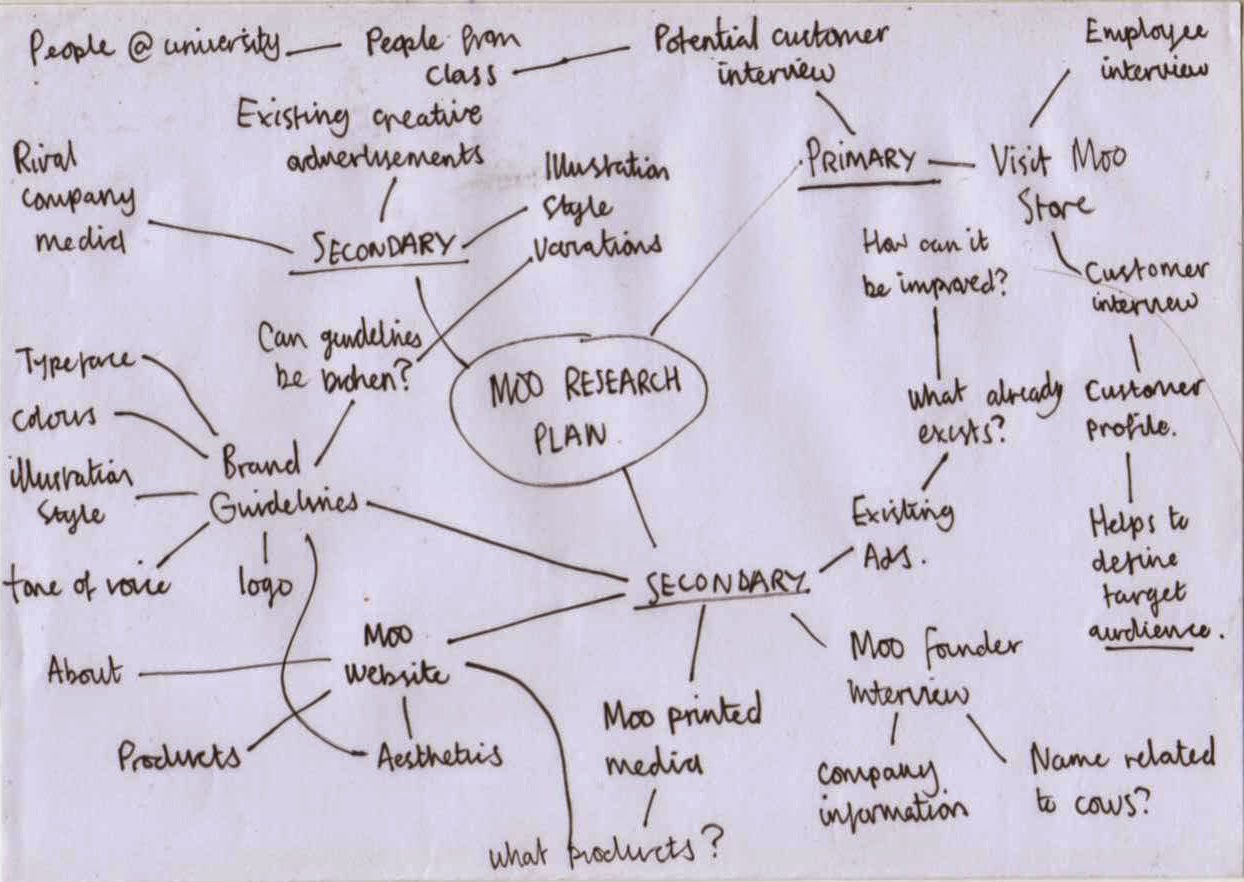 People @ university
People from
class
Potential customer
interview
Employee
interview
Existing creative
advertisements
Rival
company
media
SECONDARY
Illustration
Style
Variations
PRIMARY
Visit Moo
Store
How can it
be improved?
Customer
interview
Can guidelines
be broken?
MOO RESEARCH
PLAN
What already
exists?
Customer
profile.
Typeface
Colours
illustration
Style
tone of voice
logo
Brand
Guidelines
Existing
Ads.
Helps to
define
target
audience.
SECONDARY
Moo
Website
About
Products
Aesthetics
Moo printed
media
what products?
Moo founder
Interview
company
information
Name related
to cows?